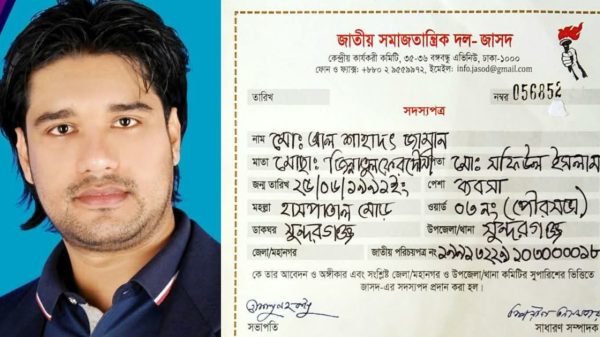 জাতীয় সমাজতান্ত্রিক দল-জাসদ
কেন্দ্রীয় কার্যকরী কমিটি, ৩৫-৩৬ বঙ্গবন্ধু এভিনিউ, ঢাকা-১০০০
ফোন ও ফ্যাক্স: +৮৮০ ২ ৯৫৫৯৯৭২, ইমেইল: info.jasod@gmail.com
তারিখ নম্বর 056852
সদস্যপত্র
নাম মোঃ আল শাহাদৎ জামান
মাতা মোছাঃ পিতা মোঃ মফিউল ইসলাম
জন্ম তারিখ ২৫/০৬/১৯৯১ইং পেশা ব্যবসা
মহল্লা হাসপাতাল মোড় ওয়ার্ড ০৩ নং (পৌরসভা)
ডাকঘর সুন্দরগঞ্জ উপজেলা/থানা সুন্দরগঞ্জ
জেলা/মহানগর জাতীয় পরিচয়পত্র নং
কে তার আবেদন ও অঙ্গীকার এবং সংশ্লিষ্ট জেলা/মহানগর ও উপজেলা/থানা কমিটির সুপারিশের ভিত্তিতে
জাসদ-এর সদস্যপদ প্রদান করা হল।
সভাপতি সাধারণ সম্পাদক